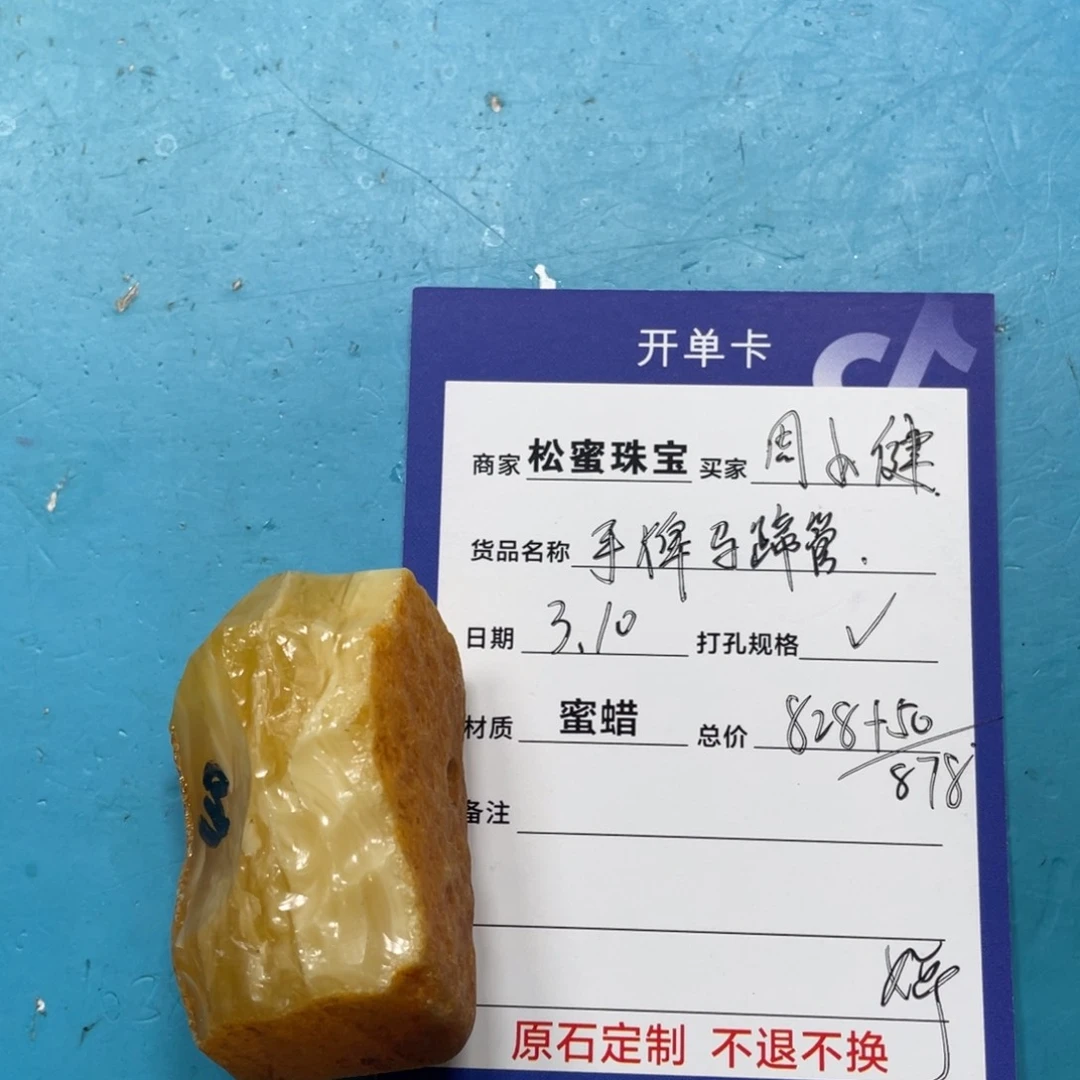 开单卡
商家 松蜜珠宝 买家 周小健
货品名称 手牌马蹄管.
日期 3.10 打孔规格 ✓
材质 蜜蜡 总价 828+50
878
备注
原石定制 不退不换